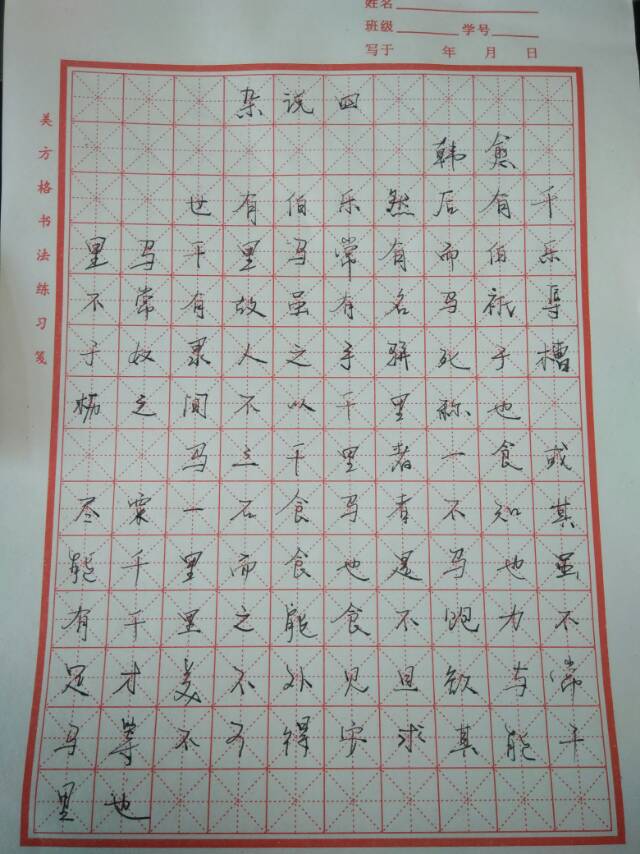 姓名
班级 学号
写于 年 月 日
美方格书法练习笺
杂说四
韩愈
世有伯乐然后有千
里马千里马常有而伯乐
不常有故虽有名马祇辱
于奴隶人之手骈死于槽
枥之间不以千里称也
马之千里者一食或
尽粟一石食马者不知其
能千里而食也是马也虽
有千里之能食不饱力不
足才美不外见且欲与常
马等不可得安求其能千
里也